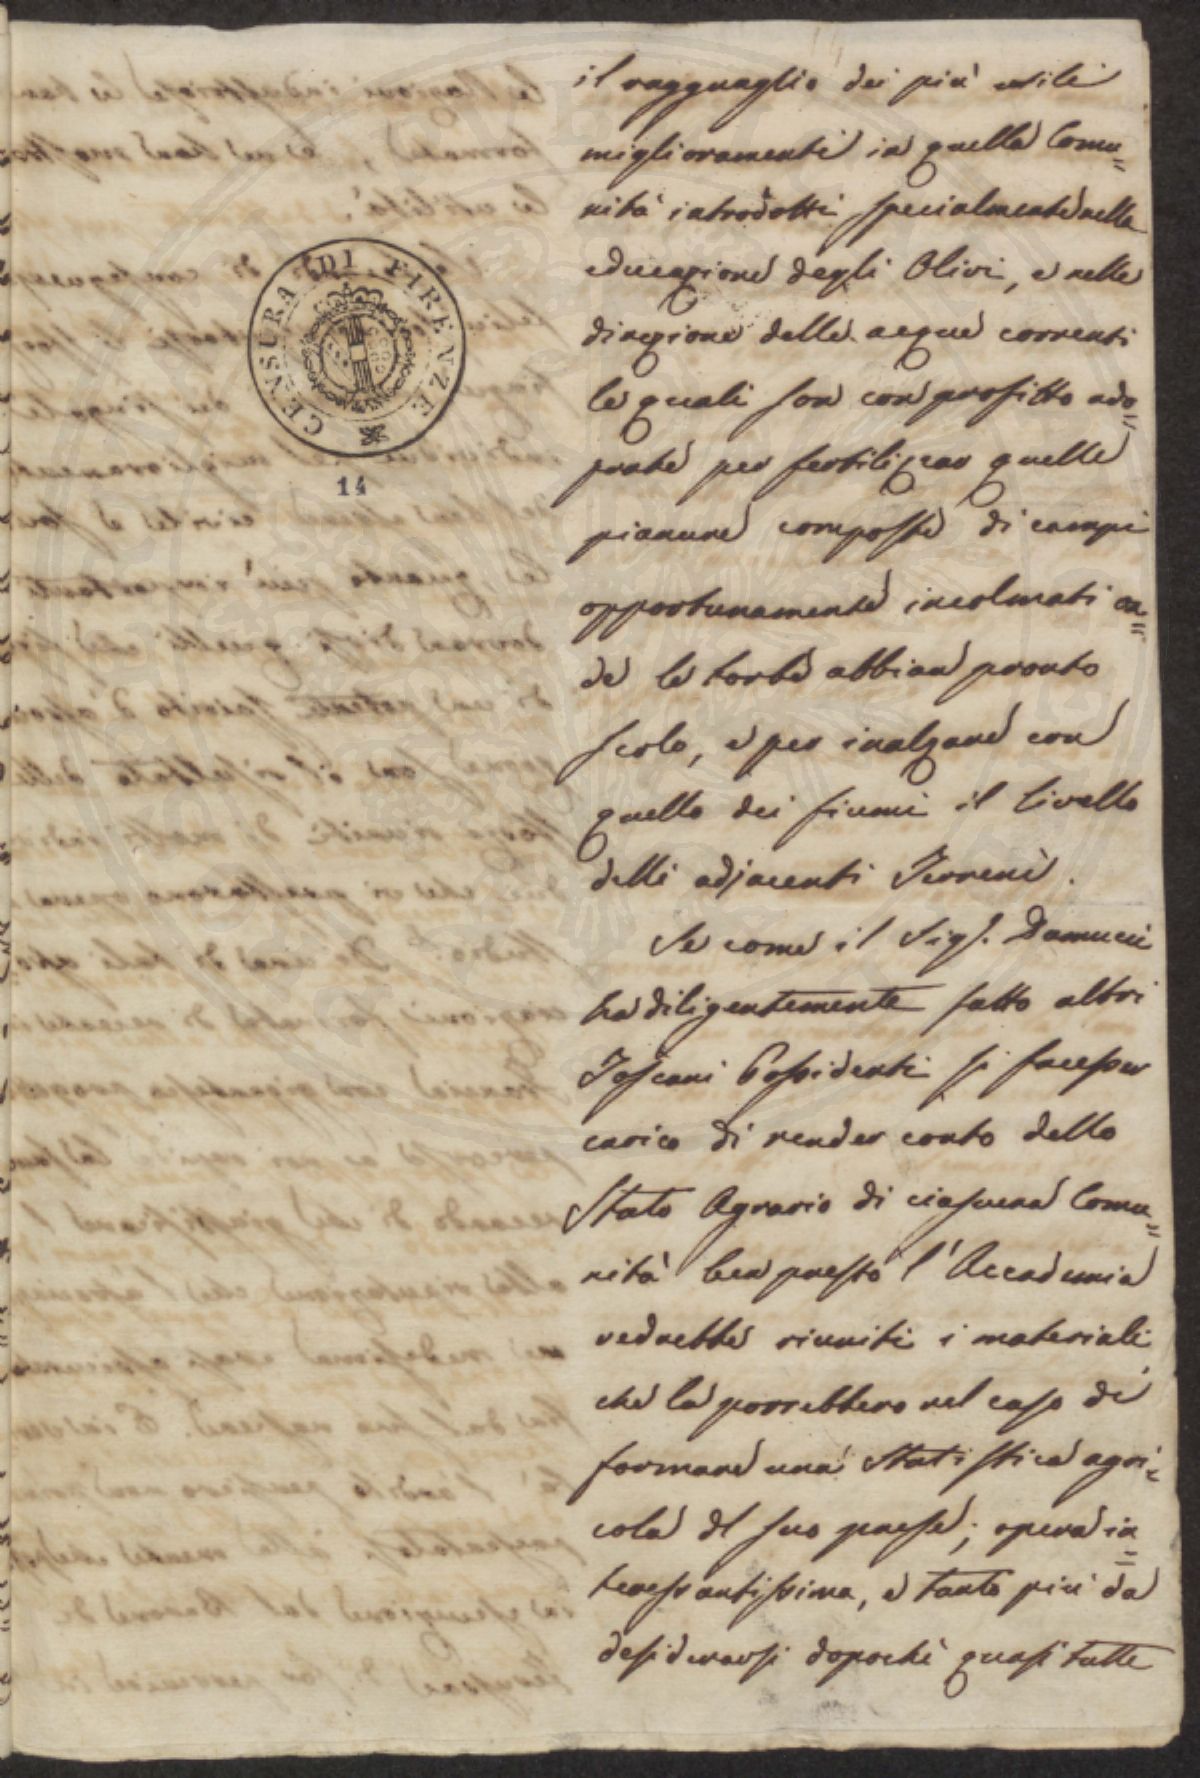 il ragguaglio dei più utili
miglioramenti in quella Comu=
nità introdotti specialmente nella
educazione degli Olivi, e nella
direzione delle acque correnti
le quali son con profitto ado=
prate per fertilizzar quelle
pianure composte di campi
opportunamente incolmati on=
de le torbe abbian pronto
scolo, e per inalzare con
quello dei fiumi il livello
delli adjacenti Terreni.
Se come il Sig. Damucci
ha diligentemente fatto altri
Toscani Possidenti si facesser
carico di render conto dello
Stato Agrario di ciascuna Comu=
nità ben presto l'Accademia
vedrebbe riuniti i materiali
che la porrebbero nel caso di
formare una Statistica agri=
cola del suo paese; opera in=
teressantissima, e tanto più da
desiderarsi dopochè quasi tutte
CENSURA DI FIRENZE
14